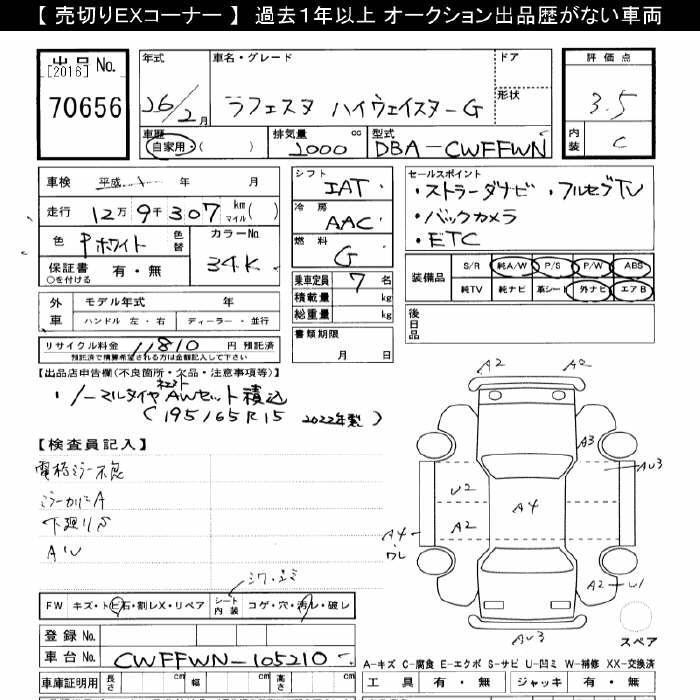 【 売切りEXコーナー 】 過去1年以上 オークション出品歴がない車両
出品 No.
[2016]
70656
年式
26/2月
車名・グレード
ラフェスタ ハイウェイスターG
ドア
形状
評価点
3.5
内装
C
車歴
自家用・( )
排気量 cc
2000
型式
DBA-CWFFWN
車検 平成 年 月
走行 12万9千307 km マイル( )
色 Pホワイト 色替
カラーNo.
34K
保証書 有・無
○を付ける
シフト
IAT
冷房
AAC
燃料
G
乗車定員 7 名
積載量 kg
総重量 kg
書類期限
月 日
セールスポイント
・ストラーダナビ ・フルセグTV
・バックカメラ
・ETC
装備品
S/R 純A/W P/S P/W ABS
純TV 純ナビ 革シート 外ナビ エアB
後日品
外車
モデル年式 年
ハンドル 左・右 ディーラー・並行
リサイクル料金 11810 円 預託済
預託済で積算希望される方は金額記入して下さい
【出品店申告欄(不良箇所・欠品・注意事項等)】
・ノーマルタイヤAWセット積込
(195/65R15 2022年製)
【検査員記入】
電格ミラー不良
下廻りS
AU
シワ・
FW キズ・トビ石・割レX・リペア
シート内装 コゲ・穴・汚レ・破レ
登録 No.
車台 No. CWFFWN-105210
車庫証明用 長さ cm 幅 cm 高さ cm
A2
A2
A3
AU3
U2
A2
A4
A4
A2
U1
AU3
スペア
A-キズ C-腐食 E-エクボ S-サビ U-凹ミ W-補修 XX-交換済
工具 有・無 ジャッキ 有・無